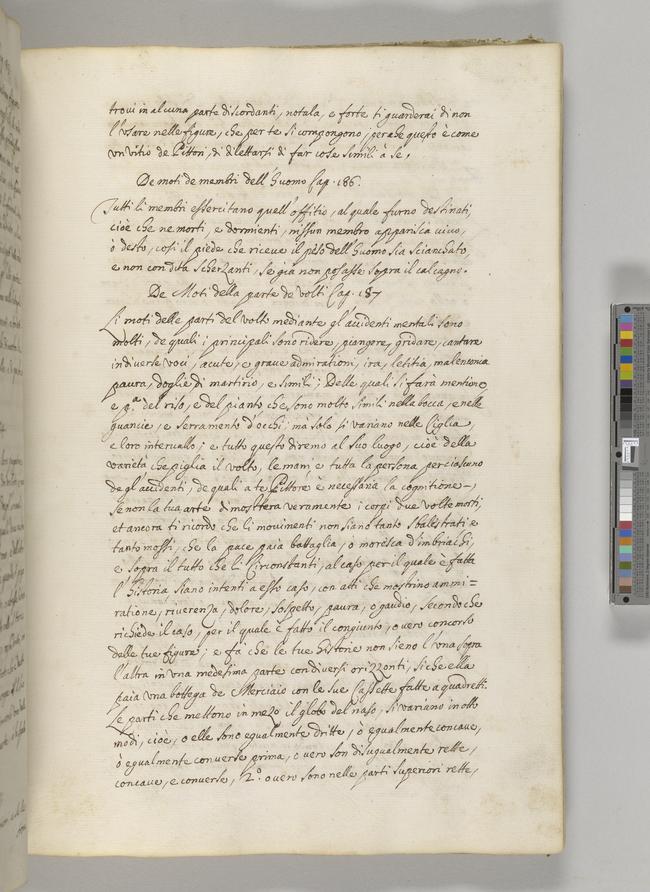 trovi in alcuna parte discordanti, notala, e forte ti guarderai di non
l'usare nelle figure, che per te si compongono, perche questo è come
un vitio de Pittori, di dilettarsi di far cose simili à se.
De moti de membri dell'Huomo Cap. 186.
Tutti li membri essercitano quell'offitio, al quale furno destinati,
cioè che ne morti, e dormienti, nissun membro apparisca vivo,
ò desto, cosi il piede che riceve il peso dell'Huomo sia scianchato,
e non con dita scherzanti, se già non posasse sopra il calcagno.
De Moti della parte de volti Cap. 187
Li moti delle parti del volto mediante gl'accidenti mentali sono
molti, de quali i principali sono ridere, piangere, gridare, cantare
in diverse voci, acute, e grave admirationi, ira, letitia, malenconia
paura, doglie di martirio, e simili; Delle quali si farà mentione,
e p.ª del riso, e del pianto che sono molto simili nella bocca, e nelle
guancie, e serramento d'occhi; ma solo si variano nelle Ciglia,
e loro intervallo; e tutto questo diremo al suo luogo, cioè della
varietà che piglia il volto, le mani e tutta la persona per ciascuno
de gl'accidenti, de quali a te Pittore è necessaria la cognitione,
se non la tua arte dimostterà veramente i corpi due volte morti,
et ancora ti ricordo che li movimenti non siano tanto sbalestrati e
tanto mossi, che la pace paia battaglia, o moresca d'imbriachi,
e sopra il tutto che li Circonstanti, al caso per il quale è fatta
l'Historia siano intenti a esso caso, con atti che mostrino ammi=
ratione, riverenza, dolore, sospetto, paura, o gaudio, secondo che
richiede il caso, per il quale è fatto il congiunto, overo concorso
delle tue figure; e fà che le tue historie non sieno l'una sopra
l'altra in una medesima parte con diversi orizzonti, si che ella
paia una bottega de Merciaio con le sue Cassette fatte a quadretti.
Le parti che mettono in mezo il globo del naso, si variano in otto
modi, cioè, o elle sono egualmente dritte, ò egualmente concave,
ò egualmente converse prima, overo son disugualmente rette,
concave, e converse, 2.º overo sono nelle parti superiori rette,